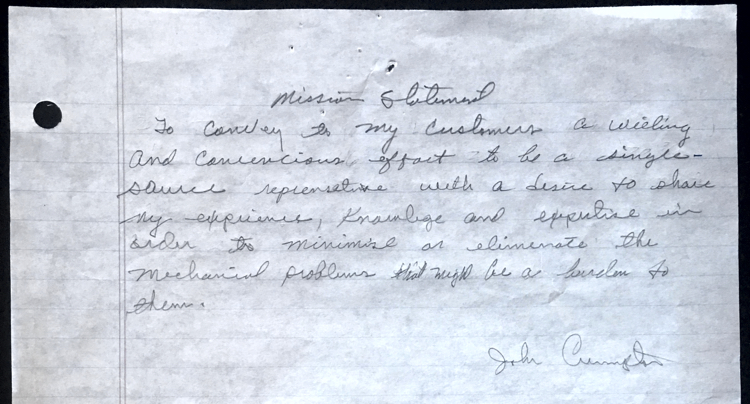 Mission Statement
To convey to my customers a willing
and concencious effort to be a single-
source reprensative with a desire to share
my experience, knowledge and expertise in
order to minimise or eliminate the
mechanical problems that might be a burden to
them.
John Crumpton